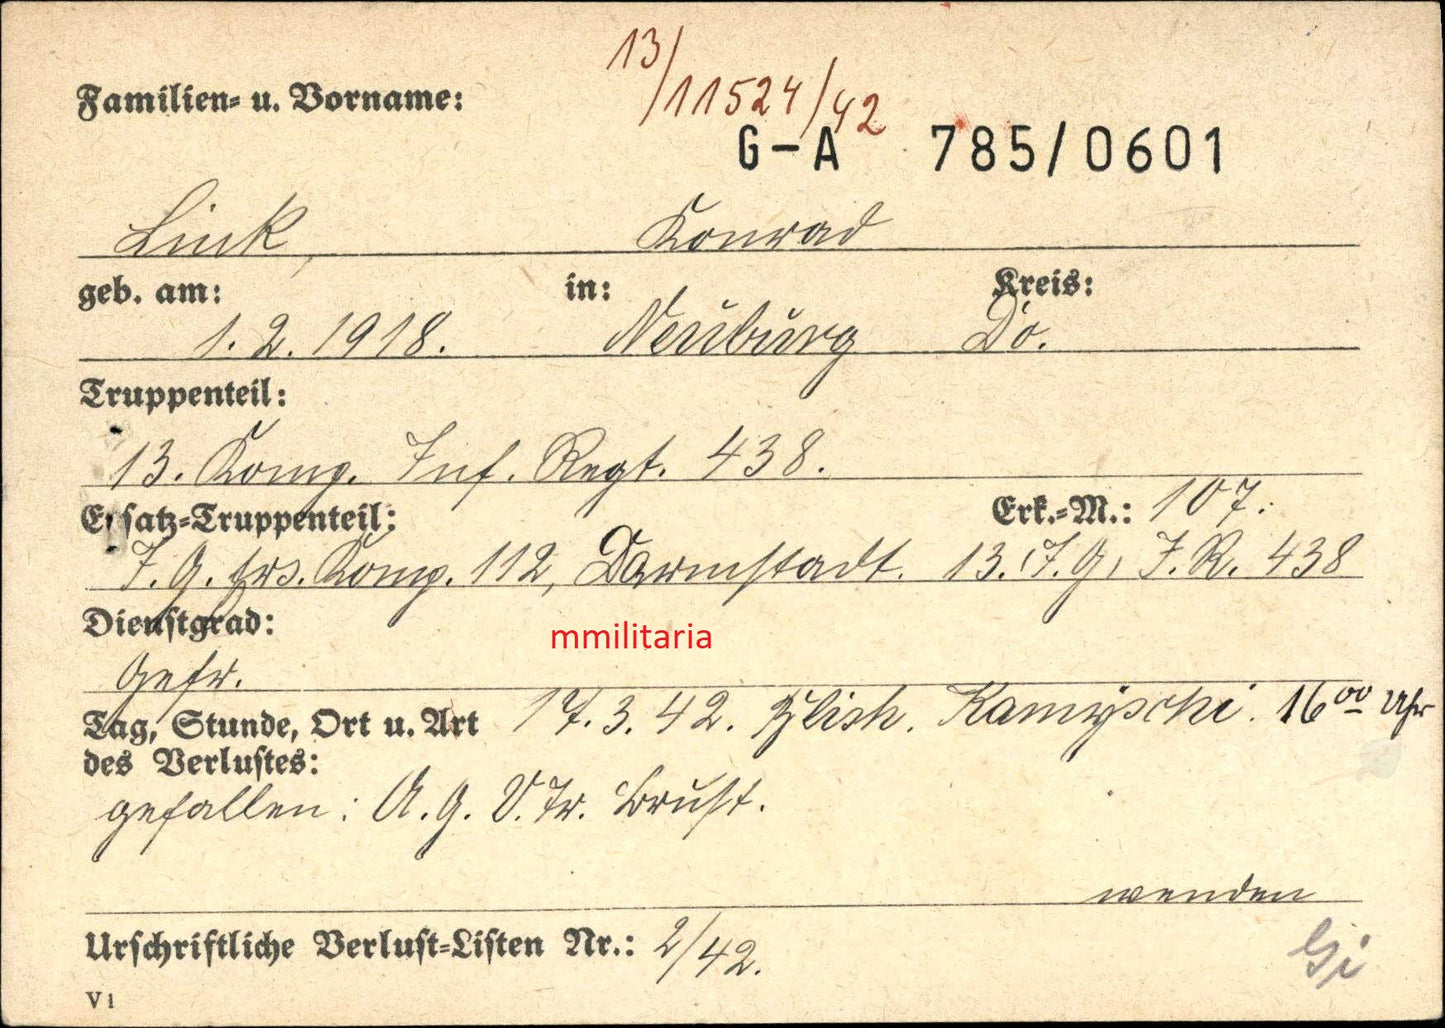 13/11524/42
Familien- u. Vorname:
G-A 785/0601
Link, Konrad
geb. am: in: Kreis:
1. 2. 1918. Neuburg Do.
Truppenteil:
13. Komp. Inf. Regt. 438.
Ersatz-Truppenteil: Erk.-M.: 107.
J. G. Ers. Komp. 112, Darmstadt. 13. J. G. J. R. 438
Dienstgrad:
mmilitaria
Gefr.
Tag, Stunde, Ort u. Art 17. 3. 42. 16⁰⁰ Uhr
des Verlustes:
gefallen: A. G. V. Tr. Brust.
wenden
Urschriftliche Verlust-Listen Nr.: 2/42.
V 1